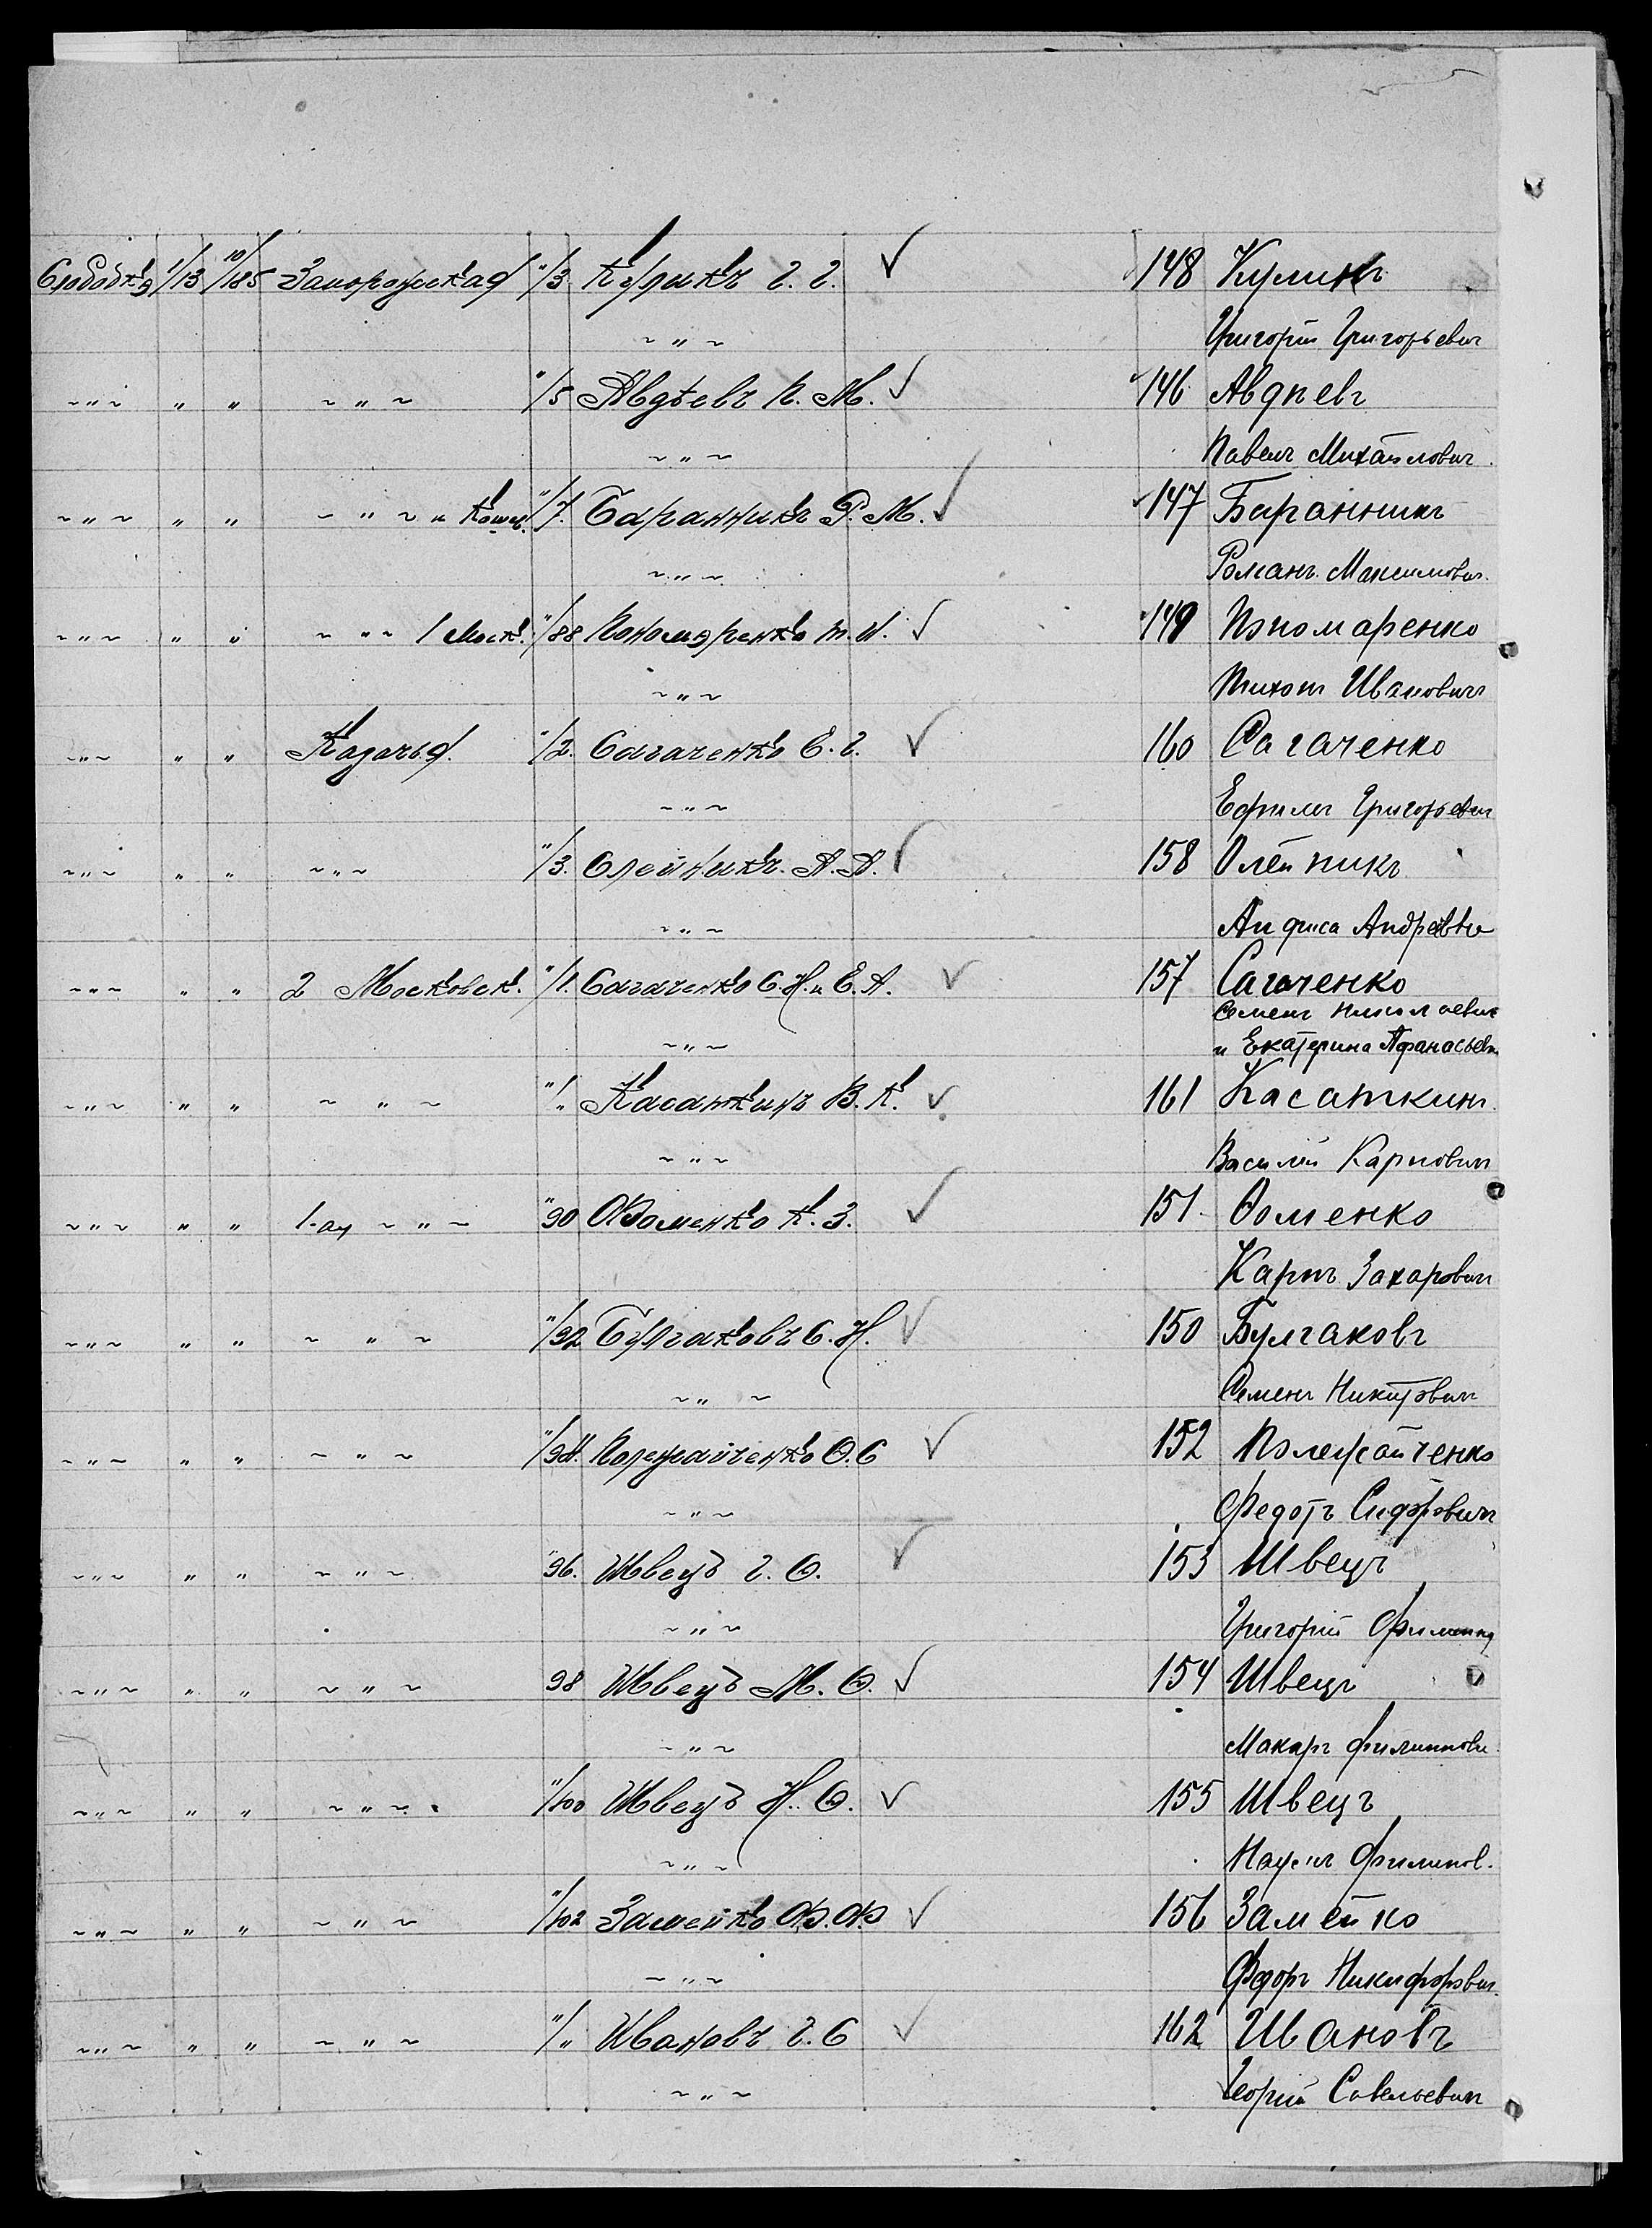 Слободка 1/13 10/185 Запорожская "/3 Куликъ Г. Г. ✓ 148 Куликъ
~ " ~ Григорій Григорьевич
~ " ~ " " ~ " ~ "/5 Авдѣевъ П. М. ✓ 146 Авдѣевъ
~ " ~ Павелъ Михайлович
~ " ~ " " ~ " ~ и Кошев. "/7. Баранникъ Р. М. ✓ 147 Баранникъ
~ " ~ Романъ Максимович.
~ " ~ " " ~ " ~ 1 Моск. "/88 Пономаренко Т. И. ✓ 149 Пономаренко
~ " ~ Тихон Ивановичъ
~ " ~ " " Казачья. "/2. Сагаченко Е. Г. ✓ 160 Сагаченко
~ " ~ Ефимъ Григорьевич
~ " ~ " " ~ " ~ "/3. Олейникъ. А. А. ✓ 158 Олейникъ
~ " ~ Анфиса Андреевна
~ " ~ " " 2 Московск. "/1. Сагаченко С. Н. и Е. А. ✓ 157 Сагаченко
Семенъ Николаевич
~ " ~ и Екатерина Афанасьевн
~ " ~ " " ~ " ~ "/" Касаткинъ В. К. ✓ 161 Касаткинъ
~ " ~ Василій Карпович
~ " ~ " " 1-ая ~ " ~ "90 Фоменко К. З. ✓ 151 Фоменко
Карпъ Захарович
~ " ~ " " ~ " ~ "/92 Булгаковъ С. Н. ✓ 150 Булгаковъ
~ " ~ Семенъ Никитович
~ " ~ " " ~ " ~ "/94. Полежайченко Ѳ. С ✓ 152 Полежайченко
~ " ~ Федотъ Сидорович
~ " ~ " " ~ " ~ "96. Швецъ Г. Ѳ. ✓ 153 Швецъ
~ " ~ Григорій
~ " ~ " " ~ " ~ 98 Швецъ М. Ѳ. ✓ 154 Швецъ
~ " ~ Макаръ Филиппови
~ " ~ " " ~ " ~ "/100 Швецъ Н. Ѳ. ✓ 155 Швецъ
~ " ~ Филипов.
~ " ~ " " ~ " ~ "/102 Замейко Ф. Ф ✓ 156 Замейко
~ " ~ Федоръ Никифорович.
~ " ~ " " ~ " ~ "/" Ивановъ Г. С ✓ 162 Ивановъ
~ " ~ Георгій Савельевич